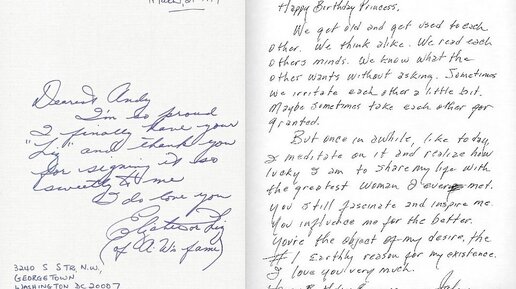 Dearest Andy
I'm so proud
I finally have your
"Liz" and thank you
for signing it so
sweetly to me
I do love you
Elizabeth or Liz
of A W's fame
3240 S STR, N.W.,
GEORGETOWN
WASHINGTON DC 20007
Happy Birthday Princess,
We get old and get used to each
other. We think alike. We read each
others minds. We know what the
other wants without asking. Sometimes
we irritate each other a little bit.
Maybe sometimes take each other for
granted.
But once in awhile, like today,
I meditate on it and realize how
lucky I am to share my life with
the greatest woman I ever met.
You still fascinate and inspire me.
You influence me for the better.
You're the object of my desire, the
#1 Earthly reason for my existence.
I love you very much.
John